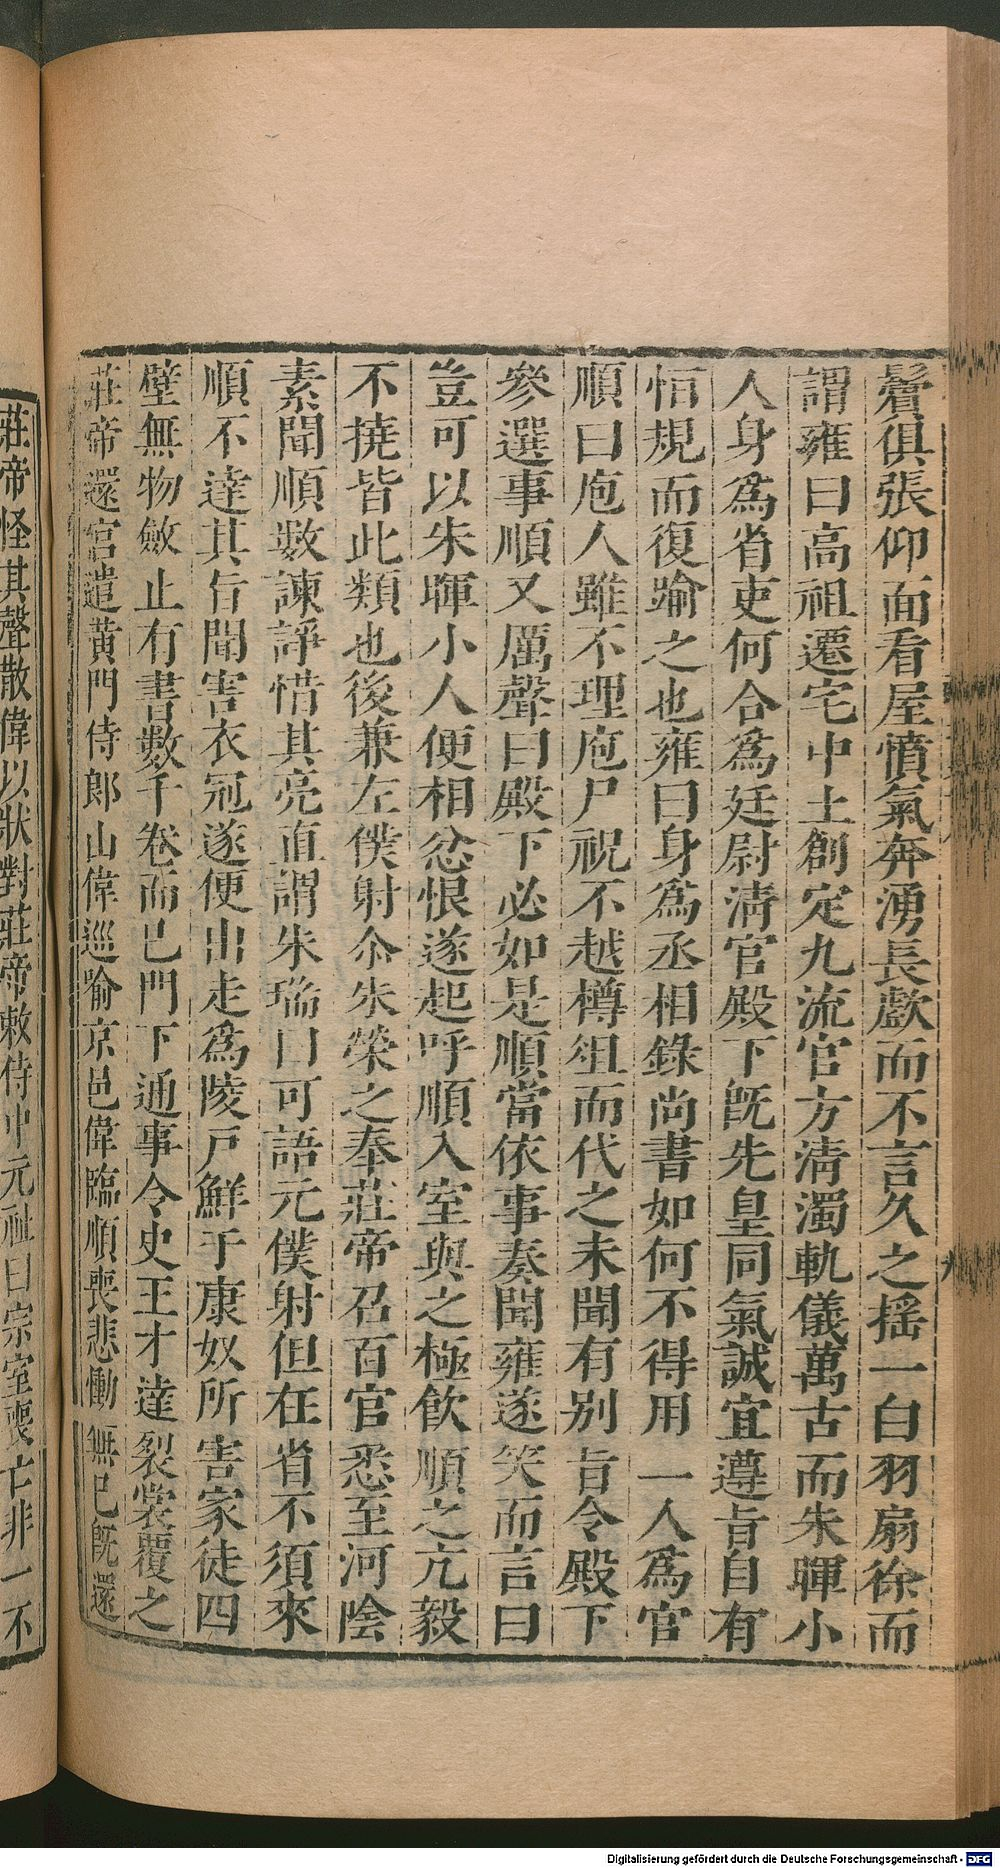 鬢俱張仰面看屋憤氣奔湧長歔而不言久之搖一白羽扇徐而
謂雍曰高祖遷宅中土創定九流官方清濁軌儀萬古而朱暉小
人身爲省吏何合爲廷尉清官殿下既先皇同氣誠宜遵旨自有
恒規而復踰之也雍曰身爲丞相錄尚書如何不得用一人爲官
順曰庖人雖不理庖尸祝不越樽俎而代之未聞有别旨令殿下
參選事順又厲聲曰殿下必如是順當依事奏聞雍遂笑而言曰
豈可以朱暉小人便相忿恨遂起呼順入室與之極飲順之亢毅
不撓皆此類也後兼左僕射尒朱榮之奉莊帝召百官悉至河陰
素聞順數諫諍惜其亮直謂朱瑞曰可語元僕射但在省不須來
順不達其旨聞害衣冠遂便出走爲陵戸鮮于康奴所害家徒四
壁無物斂止有書數千卷而已門下通事令史王才達裂裳覆之
莊帝還宫遣黄門侍郎山偉巡喻京邑偉臨順喪悲慟無已既還
莊帝怪其聲散偉以狀對莊帝敕侍中元祉曰宗室喪亡非一不
Digitalisierung gefördert durch die Deutsche Forschungsgemeinschaft - DFG